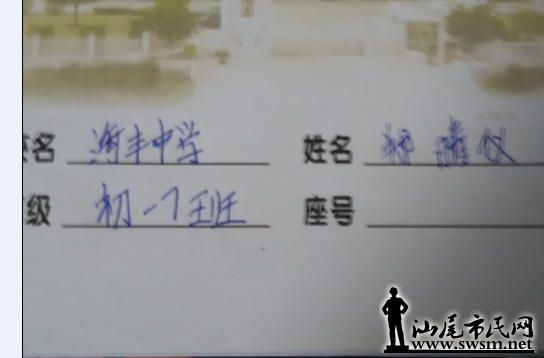 名 海丰中学 姓名
级 初一7班 座号
汕尾市民网
www.swsm.net